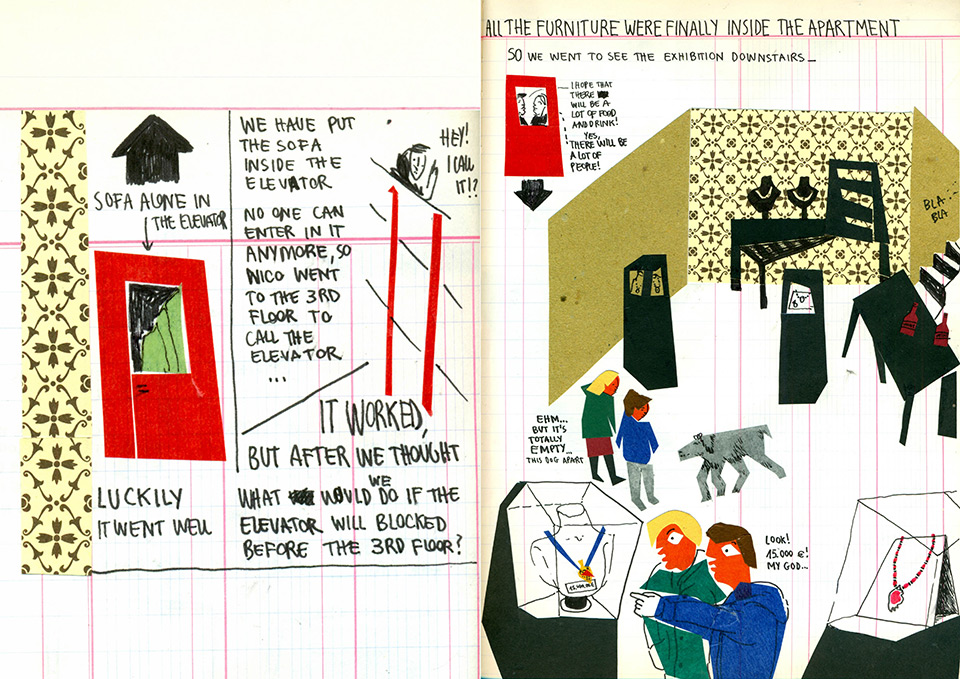 SOFA ALONE IN
THE ELEVATOR
WE HAVE PUT
THE SOFA
INSIDE THE
ELEVATOR
NO ONE CAN
ENTER IN IT
ANYMORE, SO
NICO WENT
TO THE 3RD
FLOOR TO
CALL THE
ELEVATOR
...
HEY!
I CALL
IT!?
IT WORKED,
BUT AFTER WE THOUGHT
WHAT WOULD WE DO IF THE
ELEVATOR WILL BLOCKED
BEFORE THE 3RD FLOOR?
LUCKILY
IT WENT WELL
ALL THE FURNITURE WERE FINALLY INSIDE THE APARTMENT
SO WE WENT TO SEE THE EXHIBITION DOWNSTAIRS_
I HOPE THAT
THERE
WILL BE A
LOT OF FOOD
AND DRINK!
YES,
THERE WILL BE
A LOT OF
PEOPLE!
BLA...
BLA
EHM...
BUT IT'S
TOTALLY
EMPTY...
THIS DOG APART
LOOK!
15.000 €!
MY GOD...